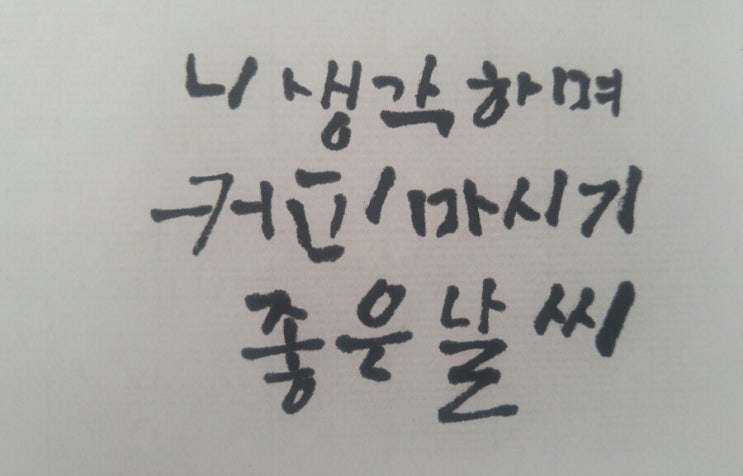 니 생각하며
커피 마시기
좋은 날씨